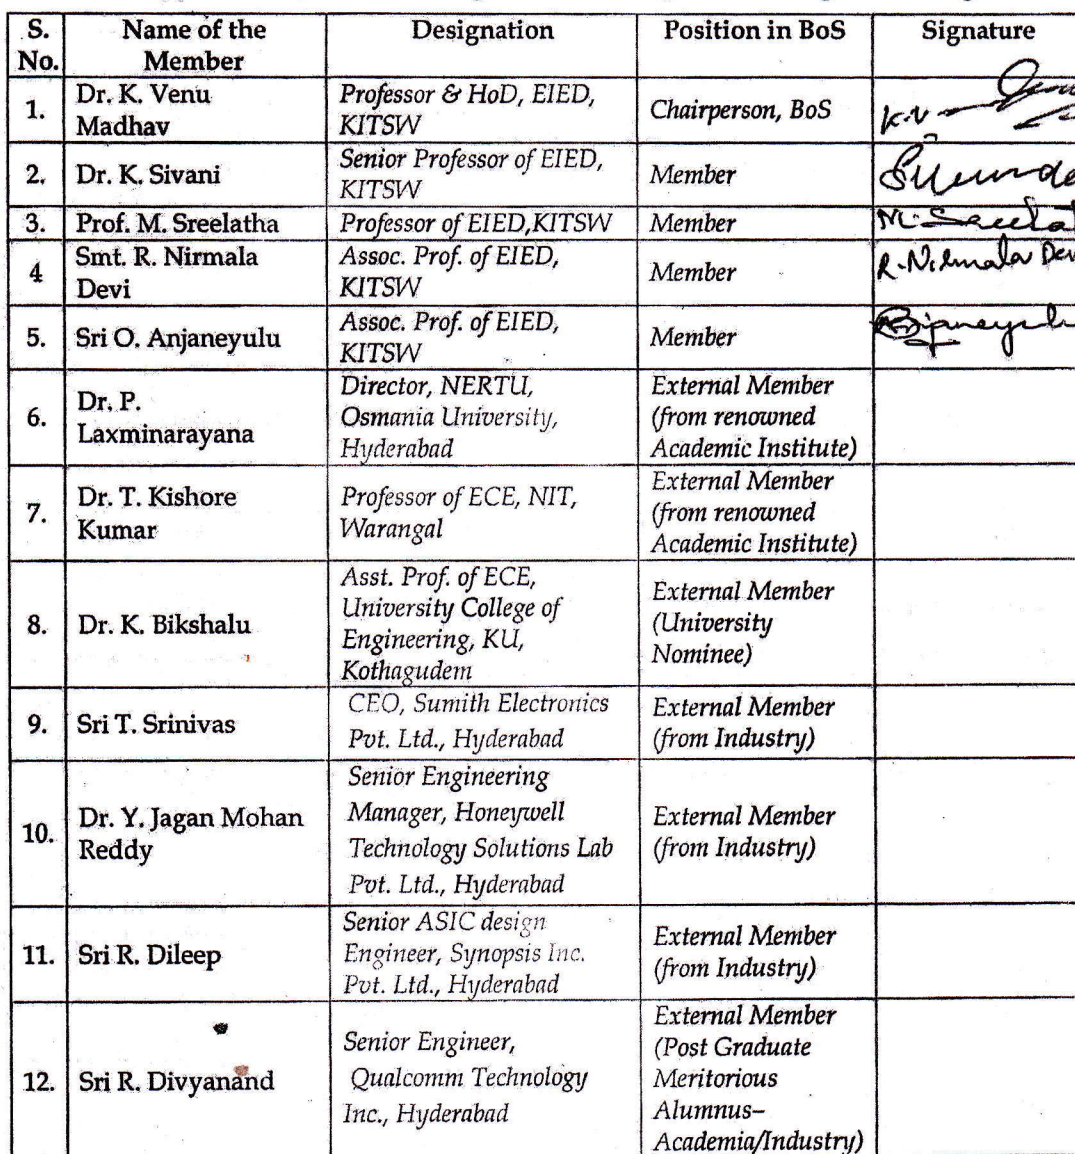 S. No. Name of the Member Designation Position in BoS Signature
1. Dr. K. Venu Madhav Professor & HoD, EIED, KITSW Chairperson, BoS K.V
2. Dr. K. Sivani Senior Professor of EIED, KITSW Member
3. Prof. M. Sreelatha Professor of EIED,KITSW Member M. Sreelat
4 Smt. R. Nirmala Devi Assoc. Prof. of EIED, KITSW Member R. Nirmala Devi
5. Sri O. Anjaneyulu Assoc. Prof. of EIED, KITSW Member
6. Dr. P. Laxminarayana Director, NERTU, Osmania University, Hyderabad External Member (from renowned Academic Institute)
7. Dr. T. Kishore Kumar Professor of ECE, NIT, Warangal External Member (from renowned Academic Institute)
8. Dr. K. Bikshalu Asst. Prof. of ECE, University College of Engineering, KU, Kothagudem External Member (University Nominee)
9. Sri T. Srinivas CEO, Sumith Electronics Pvt. Ltd., Hyderabad External Member (from Industry)
10. Dr. Y. Jagan Mohan Reddy Senior Engineering Manager, Honeywell Technology Solutions Lab Pvt. Ltd., Hyderabad External Member (from Industry)
11. Sri R. Dileep Senior ASIC design Engineer, Synopsis Inc. Pvt. Ltd., Hyderabad External Member (from Industry)
12. Sri R. Divyanand Senior Engineer, Qualcomm Technology Inc., Hyderabad External Member (Post Graduate Meritorious Alumnus– Academia/Industry)